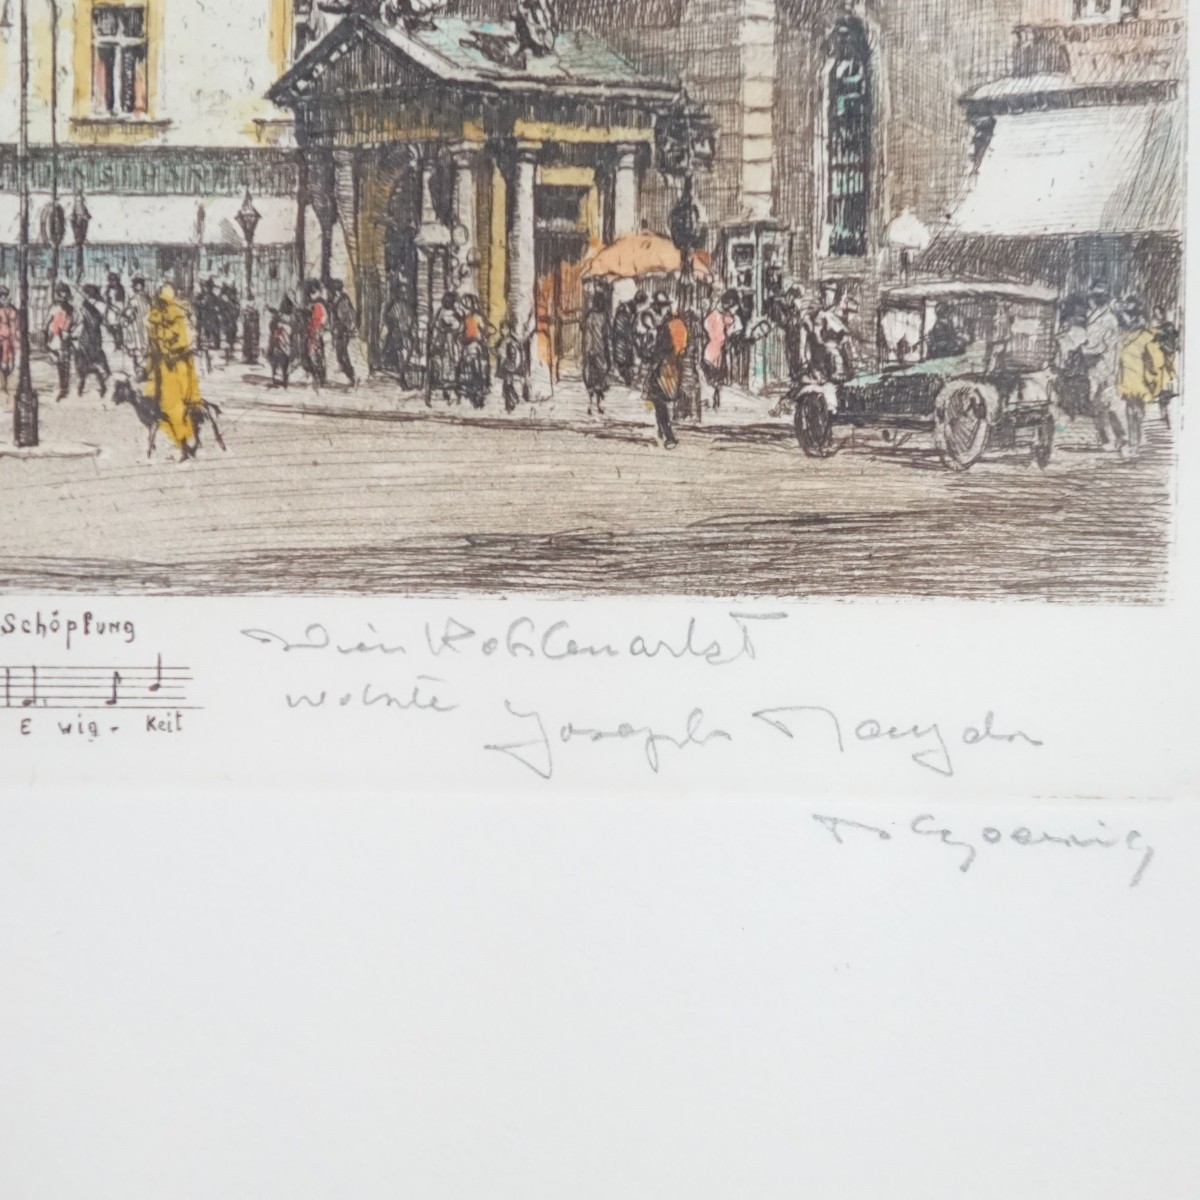 Schöpfung
E wig - Keit
Wien Kohlenmarkt
wohnte Joseph Haydn